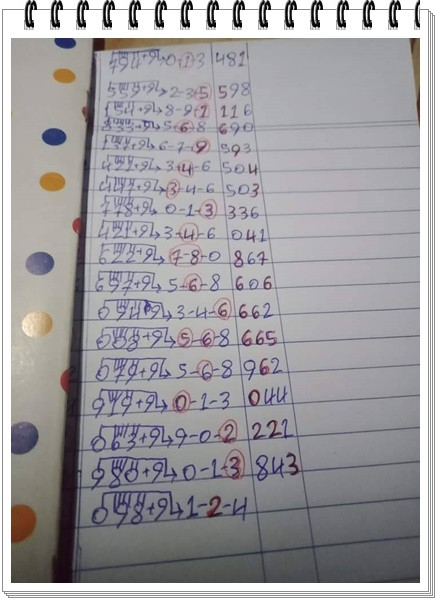 794+9→0-1-3 481
559+9→2-3-5 598
154+9→8-9-1 116
833+9→5-6-8 690
137+9→6-7-9 593
421+9→3-4-6 504
447+9→3-4-6 503
778+9→0-1-3 336
421+9→3-4-6 041
622+9→7-8-0 867
697+9→5-6-8 606
094+9→3-4-6 662
→5-6-8 665
579+9→5-6-8 962
979+9→0-1-3 044
063+9→9-0-2 221
980+9→0-1-3 843
098+9→1-2-4